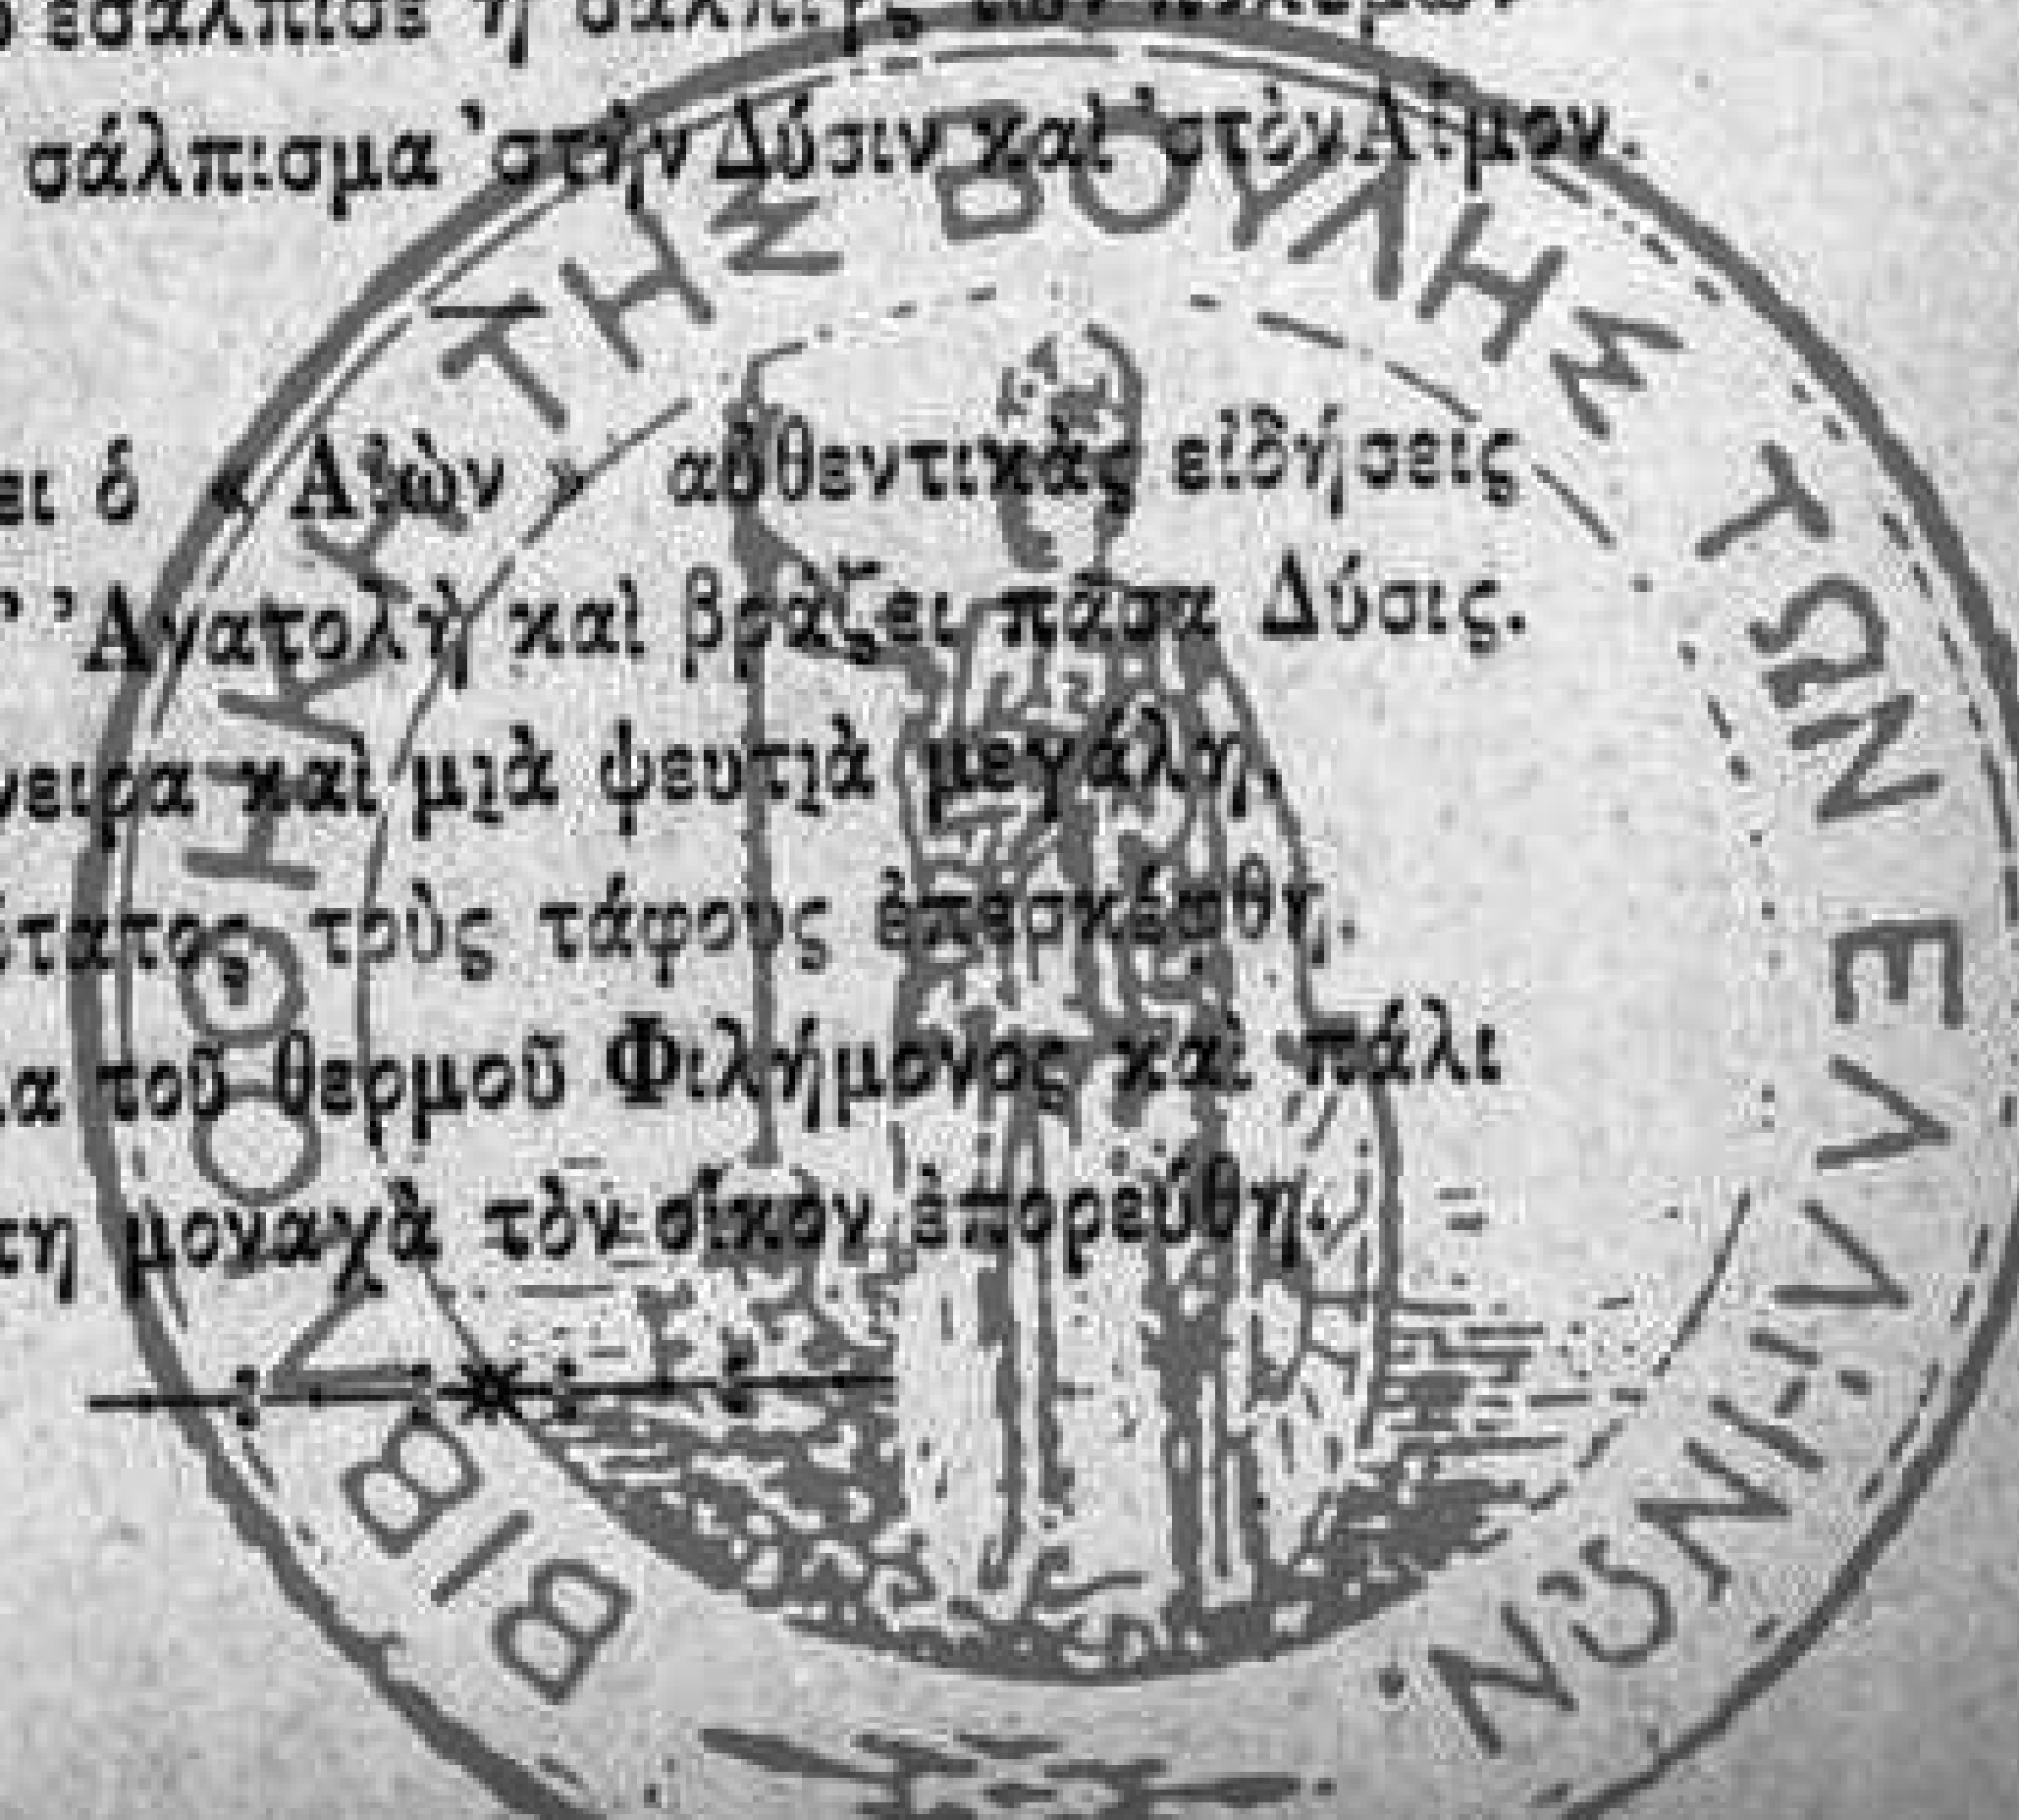 ἐσάλπισε ἡ σάλπιγξ τῶν
σάλπισμα 'στὴν Δύσιν καὶ 'στὸν Αἷμον.
ει ὁ « Αἰὼν » αὐθεντικὰς εἰδήσεις
'Ανατολὴ καὶ βράζει πᾶσα Δύσις.
νειρα καὶ μιὰ ψευτιὰ μεγάλη.
ότατος τοὺς τάφους ἐπεσκέφθη.
ια τοῦ θερμοῦ Φιλήμονος καὶ πάλι
τη μοναχὰ τὸν οἶκον ἐπορεύθη.
ΒΙΒΛΙΟΘΗΚΗ ΤΗΣ ΒΟΥΛΗΣ ΤΩΝ ΕΛΛΗΝΩΝ